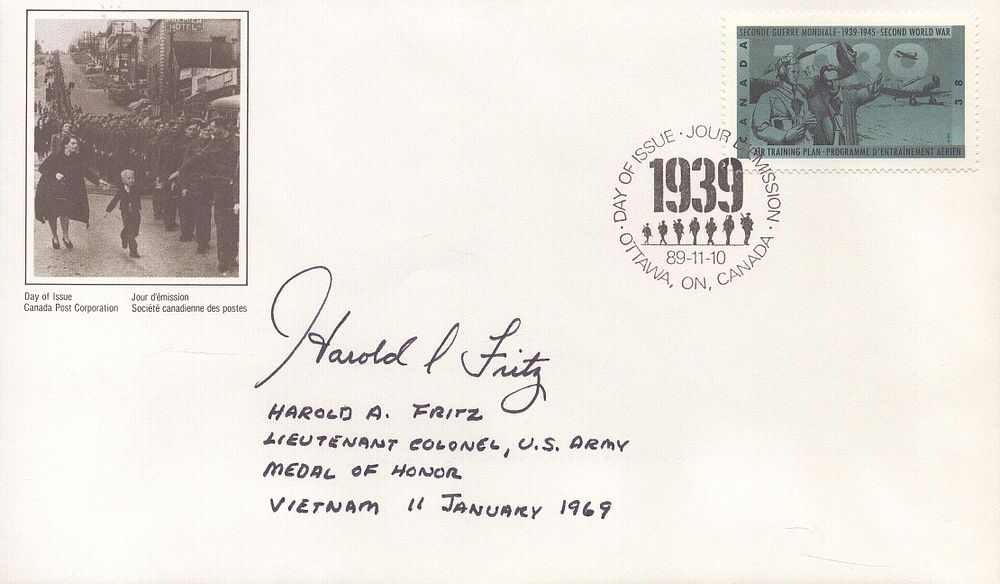 HOTEL
SECONDE GUERRE MONDIALE · 1939-1945 · SECOND WORLD WAR
1939
CANADA
38
AIR TRAINING PLAN · PROGRAMME D'ENTRAÎNEMENT AÉRIEN
· DAY OF ISSUE · JOUR D'ÉMISSION ·
1939
89-11-10
OTTAWA, ON, CANADA
Day of Issue Jour d'émission
Canada Post Corporation Société canadienne des postes
Harold A Fritz
HAROLD A. FRITZ
LIEUTENANT COLONEL, U.S. ARMY
MEDAL OF HONOR
VIETNAM 11 JANUARY 1969